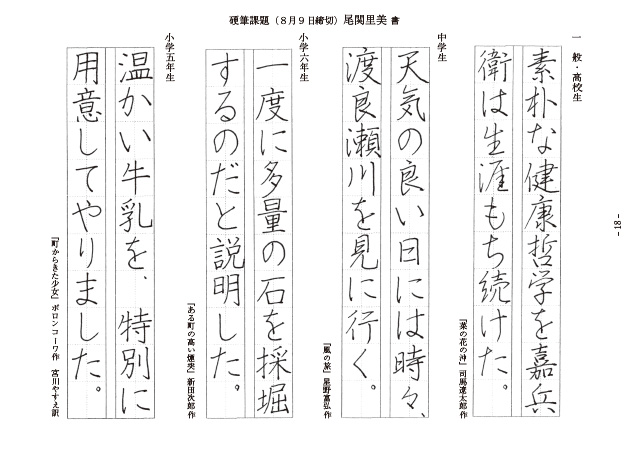 硬筆課題（８月９日締切）尾関里美 書
一般・高校生
素朴な健康哲学を嘉兵
衛は生涯もち続けた。
『菜の花の沖』司馬遼太郎 作
中学生
天気の良い日には時々、
渡良瀬川を見に行く。
『風の旅』星野富弘 作
小学六年生
一度に多量の石を採掘
するのだと説明した。
『ある町の高い煙突』新田次郎 作
小学五年生
温かい牛乳を、特別に
用意してやりました。
『町からきた少女』ボロンコーワ作　宮川やすえ訳
- 18 -